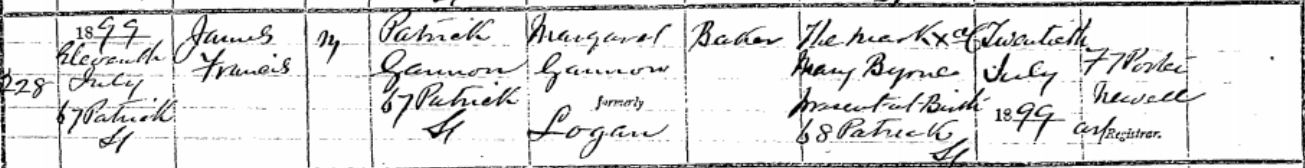 228
1899
Eleventh
July
67 Patrick
St
James
Francis
M
Patrick
Gannon
67 Patrick
St
Margaret
Gannon
formerly
Logan
Baker
The mark x of
Mary Byrne
present at Birth
68 Patrick
St
Twentieth
July
1899
Newell
Registrar.